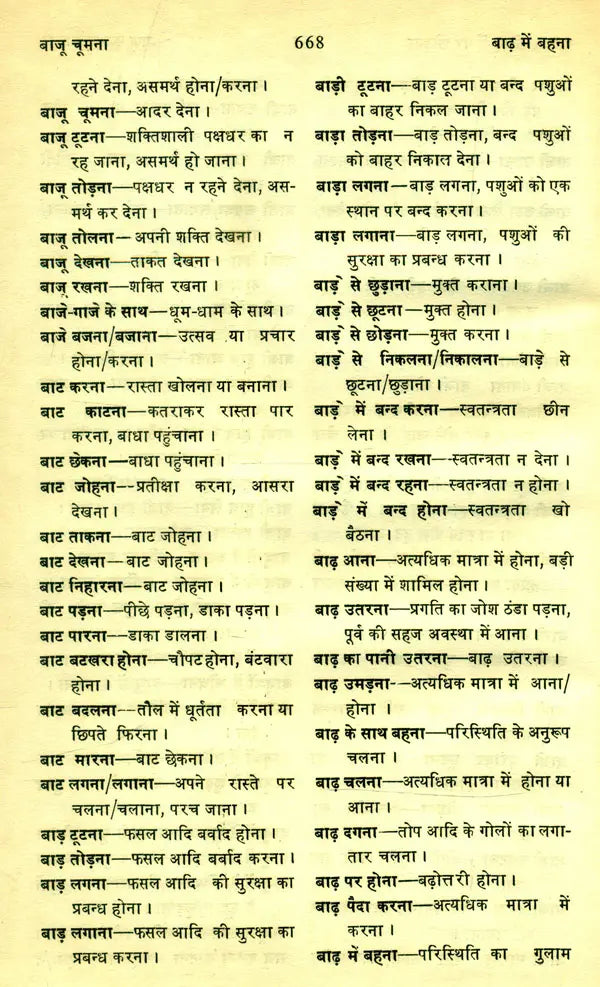 बाजू चूमना
668
बाढ़ में बहना
रहने देना, असमर्थ होना/करना ।
बाजू चूमना—आदर देना ।
बाजू टूटना—शक्तिशाली पक्षधर का न
रह जाना, असमर्थ हो जाना ।
बाजू तोड़ना—पक्षधर न रहने देना, अस-
मर्थ कर देना ।
बाजू तोलना—अपनी शक्ति देखना ।
बाजू देखना—ताकत देखना ।
बाजू रखना—शक्ति रखना ।
बाजे-गाजे के साथ—धूम-धाम के साथ ।
बाजे बजना/बजाना—उत्सव या प्रचार
होना/करना ।
बाट करना—रास्ता खोलना या बनाना ।
बाट काटना—कतराकर रास्ता पार
करना, बाधा पहुंचाना ।
बाट छेकना—बाधा पहुंचाना ।
बाट जोहना—प्रतीक्षा करना, आसरा
देखना ।
बाट ताकना—बाट जोहना ।
बाट देखना—बाट जोहना ।
बाट निहारना—बाट जोहना ।
बाट पड़ना—पीछे पड़ना, डाका पड़ना ।
बाट पारना—डाका डालना ।
बाट बटखरा होना—चौपट होना, बंटवारा
होना ।
बाट बदलना—तौल में धूर्तता करना या
छिपते फिरना ।
बाट मारना—बाट छेकना ।
बाट लगना/लगाना—अपने रास्ते पर
चलना/चलाना, परच जाना ।
बाड़ टूटना—फसल आदि बर्वाद होना ।
बाड़ तोड़ना—फसल आदि बर्बाद करना ।
बाड़ लगना—फसल आदि की सुरक्षा का
प्रबन्ध होना ।
बाड़ लगाना—फसल आदि की सुरक्षा का
प्रबन्ध करना ।
बाड़ी टूटना—बाड़ टूटना या बन्द पशुओं
का बाहर निकल जाना ।
बाड़ा तोड़ना—बाड़ तोड़ना, बन्द पशुओं
को बाहर निकाल देना ।
बाड़ा लगना—बाड़ लगना, पशुओं को एक
स्थान पर बन्द करना ।
बाड़ा लगाना—बाड़ लगना, पशुओं की
सुरक्षा का प्रबन्ध करना ।
बाड़े से छुड़ाना—मुक्त कराना ।
बाड़े से छूटना—मुक्त होना ।
बाड़े से छोड़ना—मुक्त करना ।
बाड़े से निकलना/निकालना—बाड़े से
छूटना/छुड़ाना ।
बाड़े में बन्द करना—स्वतन्त्रता छीन
लेना ।
बाड़े में बन्द रखना—स्वतन्त्रता न देना ।
बाड़े में बन्द रहना—स्वतन्त्रता न होना ।
बाड़े में बन्द होना—स्वतन्त्रता खो
बैठना ।
बाढ़ आना—अत्यधिक मात्रा में होना, बड़ी
संख्या में शामिल होना ।
बाढ़ उतरना—प्रगति का जोश ठंडा पड़ना,
पूर्व की सहज अवस्था में आना ।
बाढ़ का पानी उतरना—बाढ़ उतरना ।
बाढ़ उमड़ना--अत्यधिक मात्रा में आना/
होना ।
बाढ़ के साथ बहना—परिस्थिति के अनुरूप
चलना ।
बाढ़ चलना—अत्यधिक मात्रा में होना या
आना ।
बाढ़ दगना—तोप आदि के गोलों का लगा-
तार चलना ।
बाढ़ पर होना—बढ़ोत्तरी होना ।
बाढ़ पैदा करना—अत्यधिक मात्रा में
करना ।
बाढ़ में बहना—परिस्थिति का गुलाम